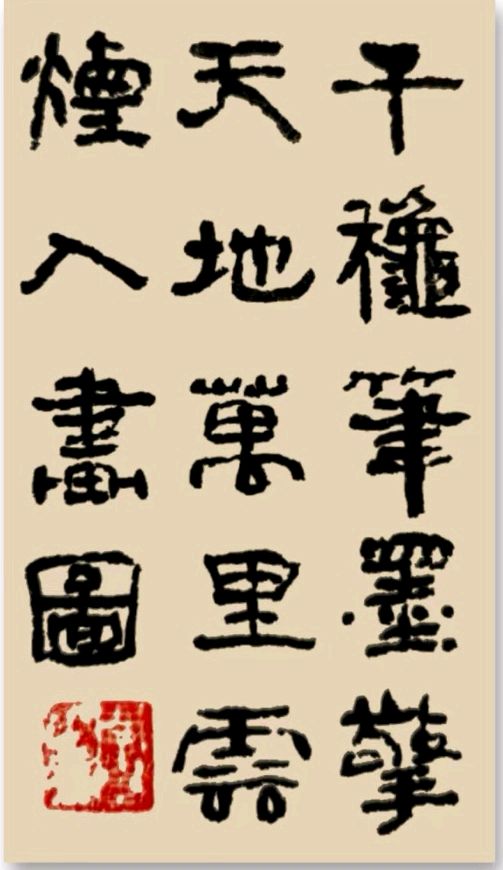 千穐筆墨擎
天地萬里雲
煙入畫圖